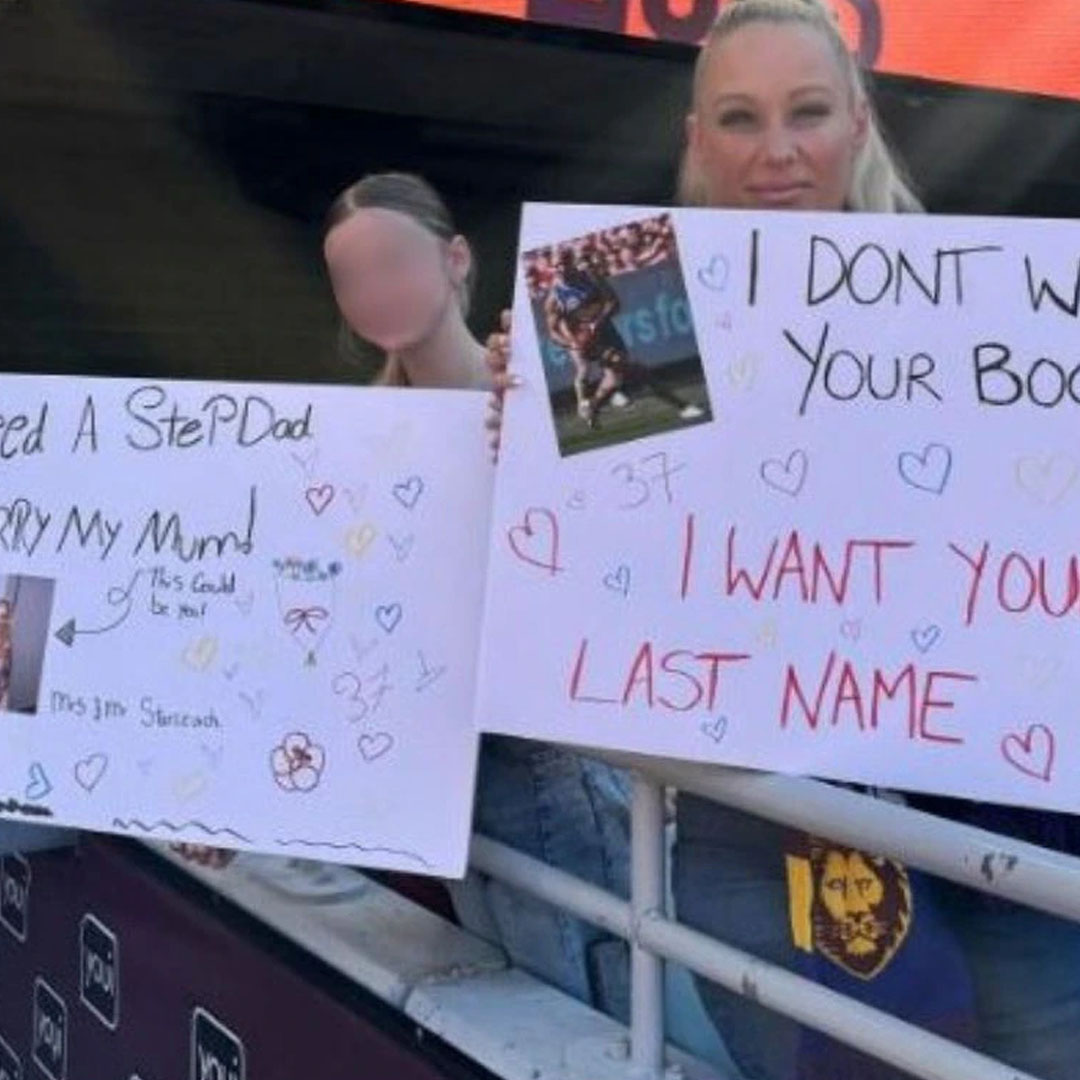 eed A StePDad
RRY My Mum!
This Could
be you!
Mrs & Mr Starcevich
37
1
I DONT W
YOUR BOO
37
I WANT YOU
LAST NAME
rsfo
youi
youi
youi
youi